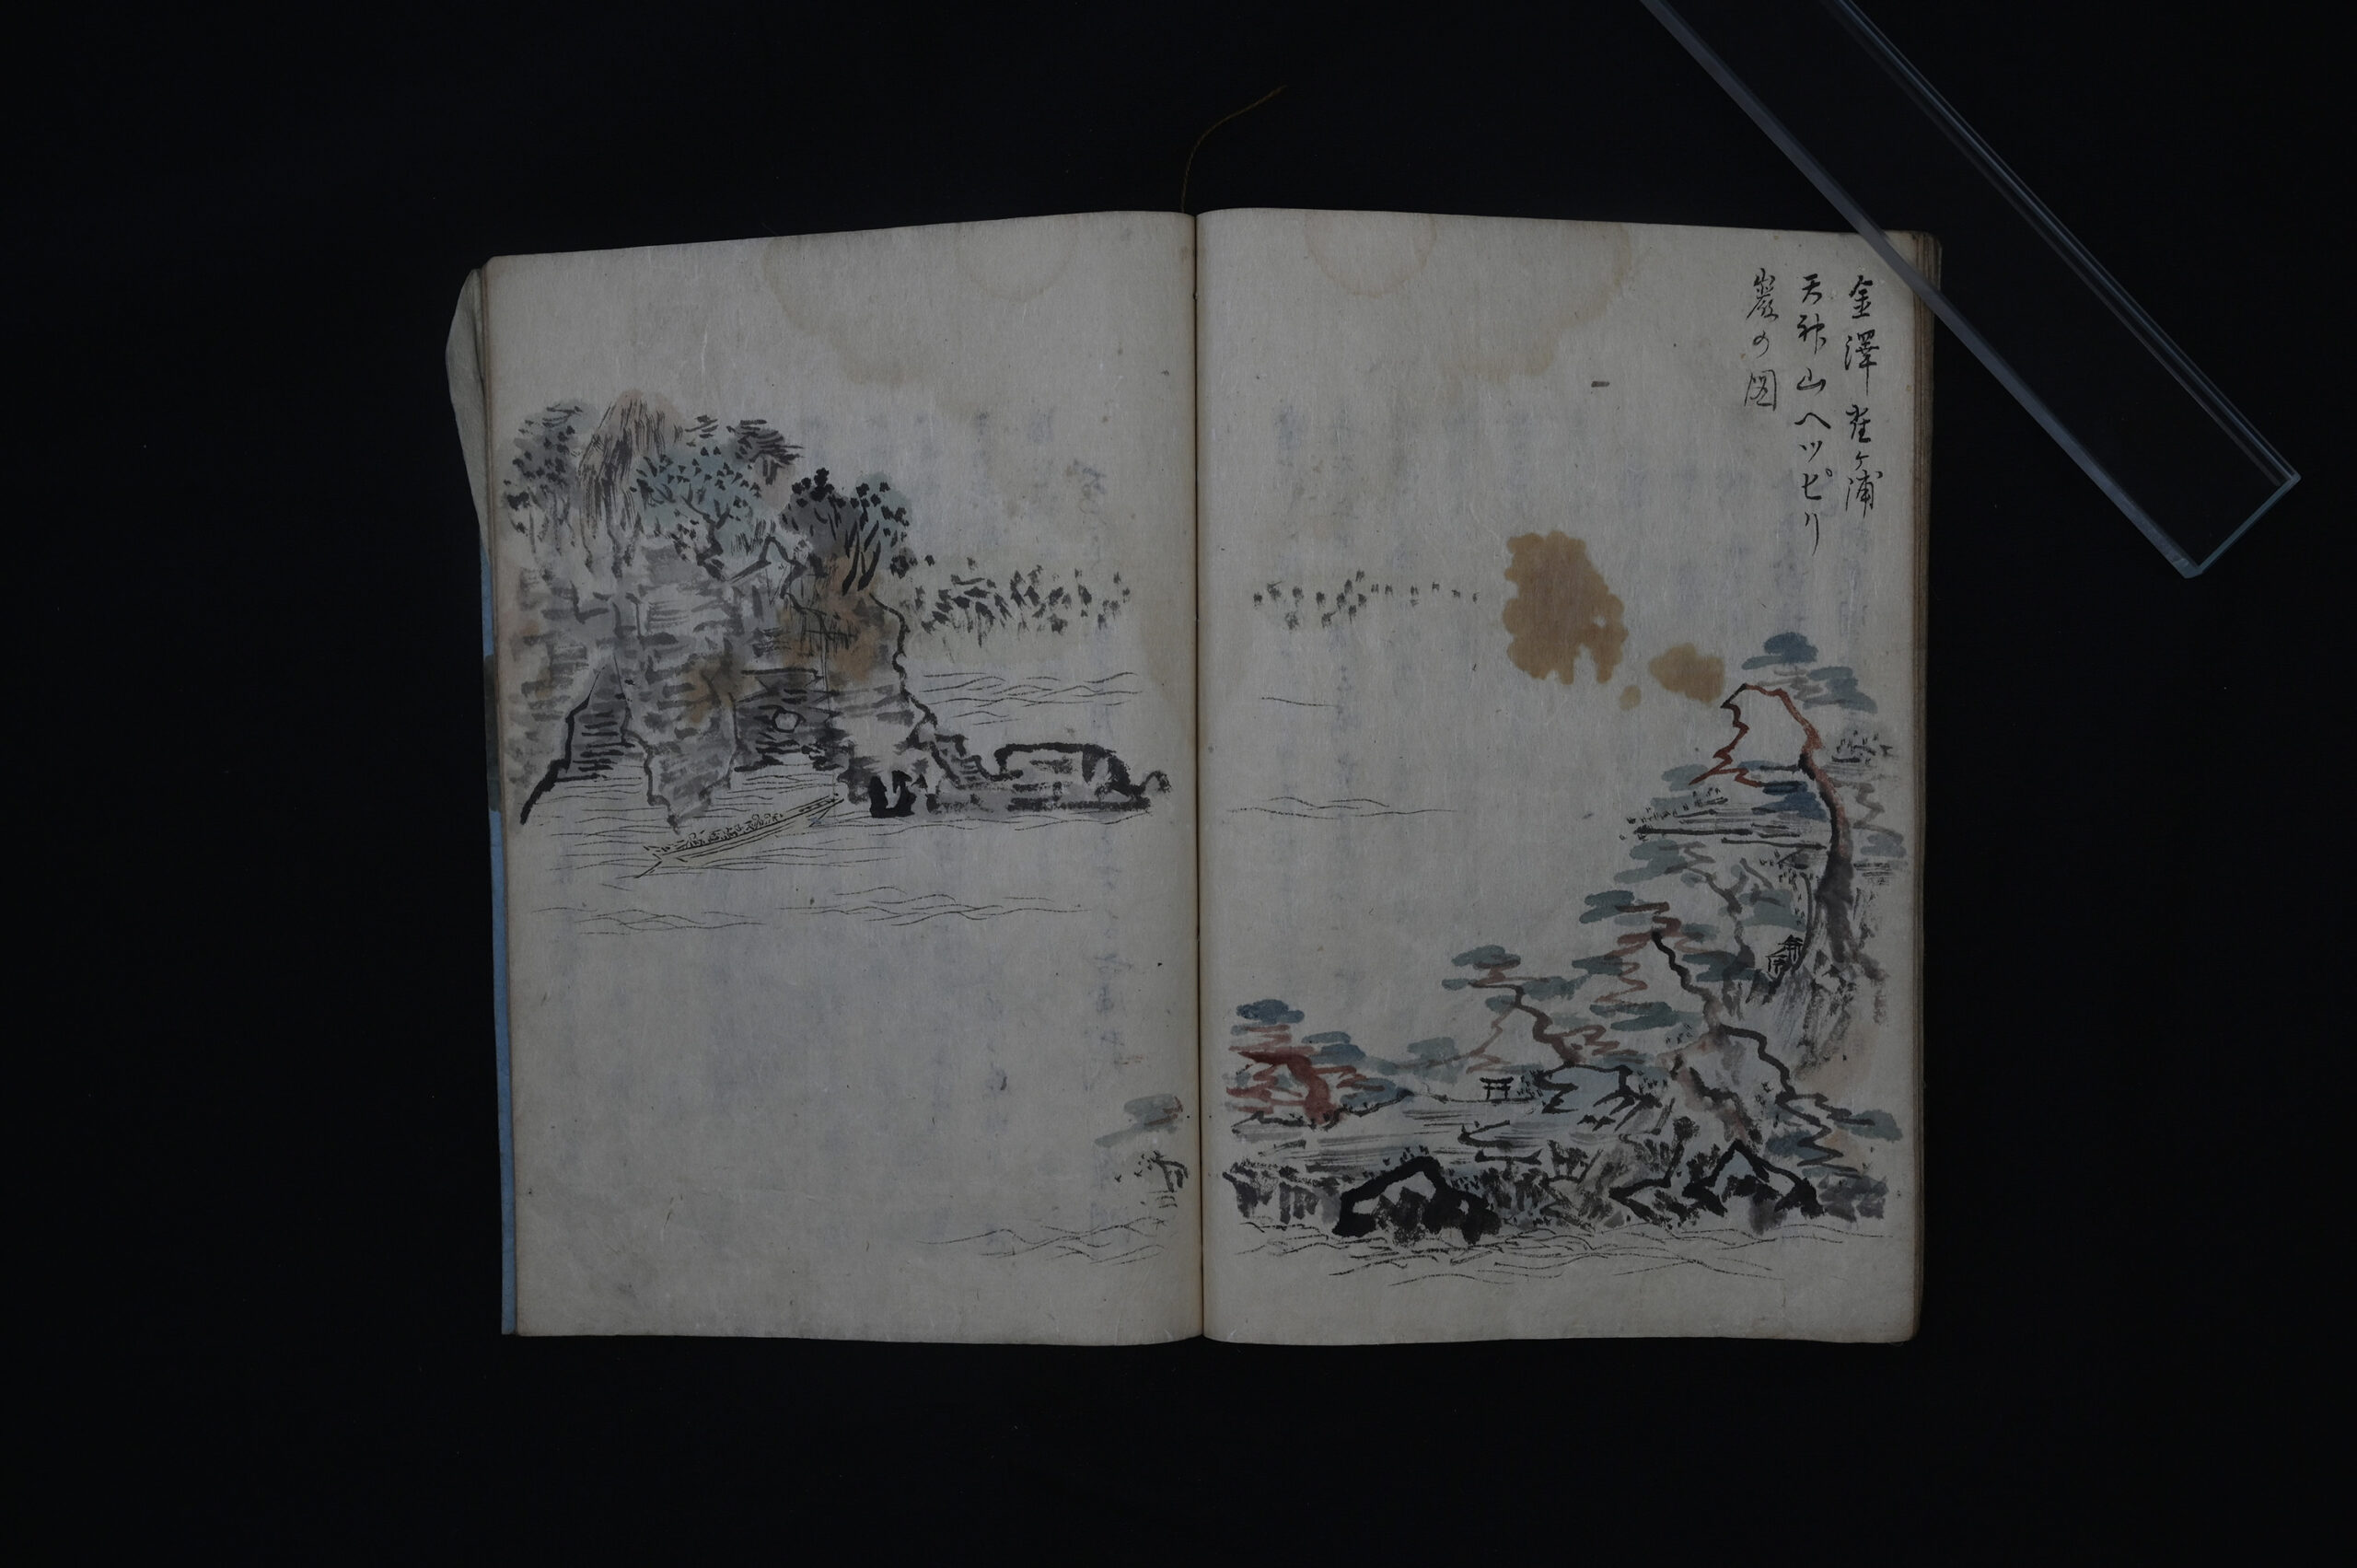 金澤雀ヶ浦
天神山ヘツピリ
巌の図